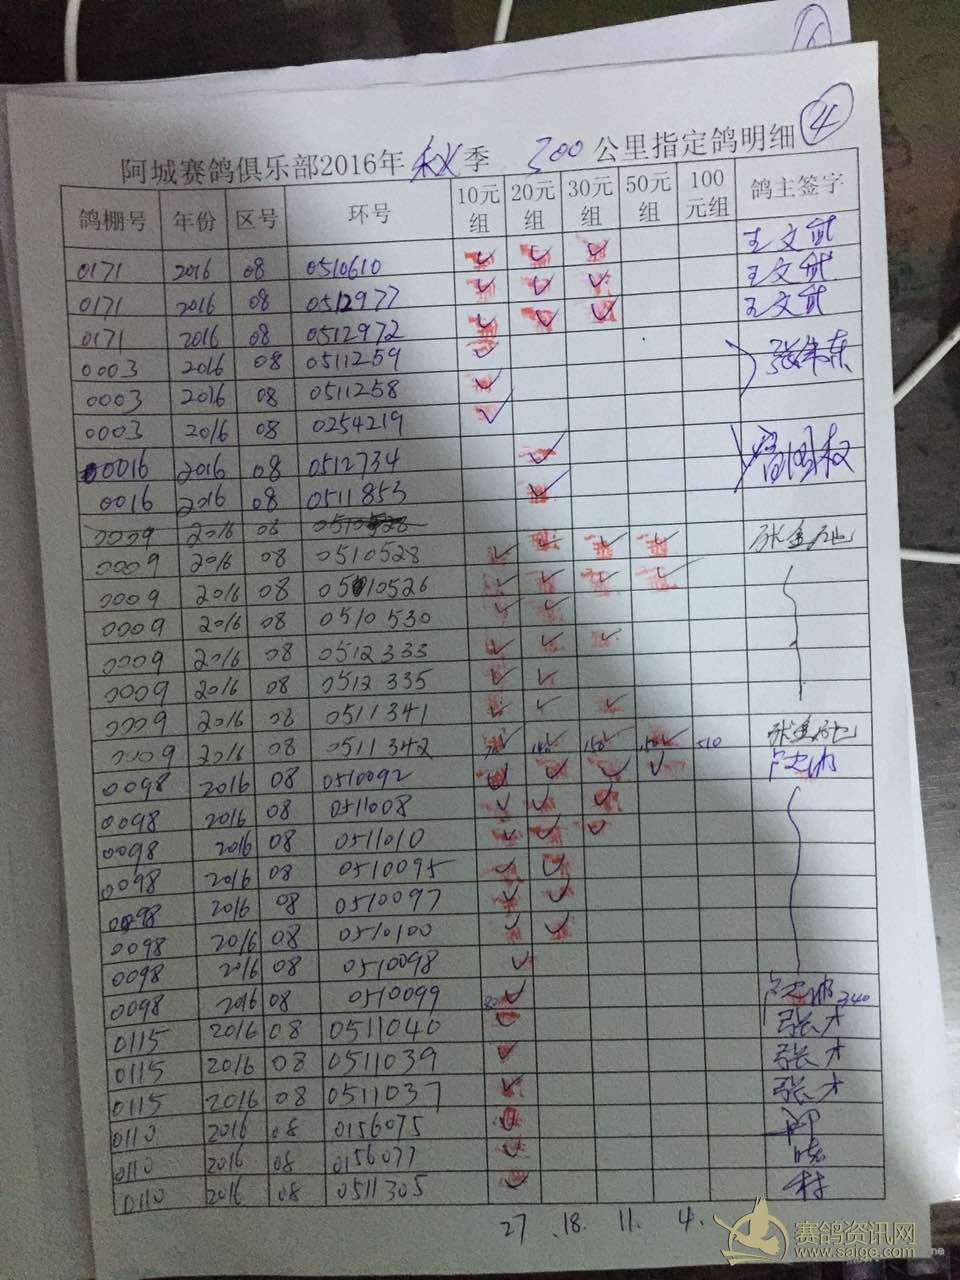 ④
阿城赛鸽俱乐部2016年 秋 季 300 公里指定鸽明细
鸽棚号 年份 区号 环号 10元组 20元组 30元组 50元组 100元组 鸽主签字
0171 2016 08 0510610 ✓ ✓ ✓ 王文武
0171 2016 08 0512977 ✓ ✓ ✓ 王文武
0171 2016 08 0512972 ✓ ✓ ✓ 王文武
0003 2016 08 0511259 ✓
0003 2016 08 0511258 ✓
0003 2016 08 0254219 ✓
0016 2016 08 0512734 ✓
0016 2016 08 0511853 ✓
0009 2016 08
0009 2016 08 0510528 ✓ ✓ ✓ ✓ 张金
0009 2016 08 0510526 ✓ ✓ ✓ ✓
0009 2016 08 0510530 ✓ ✓
0009 2016 08 0512333 ✓ ✓ ✓
0009 2016 08 0512335 ✓ ✓
0009 2016 08 0511341 ✓ ✓ ✓
0009 2016 08 0511342 70 140 150 150 510 张金
0098 2016 08 0510092 ✓ ✓ ✓ ✓
0098 2016 08 0511008 ✓ ✓ ✓
0098 2016 08 0511010 ✓ ✓ ✓
0098 2016 08 0510095 ✓ ✓
0098 2016 08 0510097 ✓ ✓
0098 2016 08 0510100 ✓ ✓
0098 2016 08 0510098 ✓
0098 2016 08 0510099 80 ✓ 340
0115 2016 08 0511040 ✓ 张才
0115 2016 08 0511039 ✓ 张才
0115 2016 08 0511037 ✓ 张才
0110 2016 08 0156075 ✓
0110 2016 08 0156077 ✓
0110 2016 08 0511305 ✓ 村
27 . 18. 11. 4.
赛鸽资讯网
www.saige.com